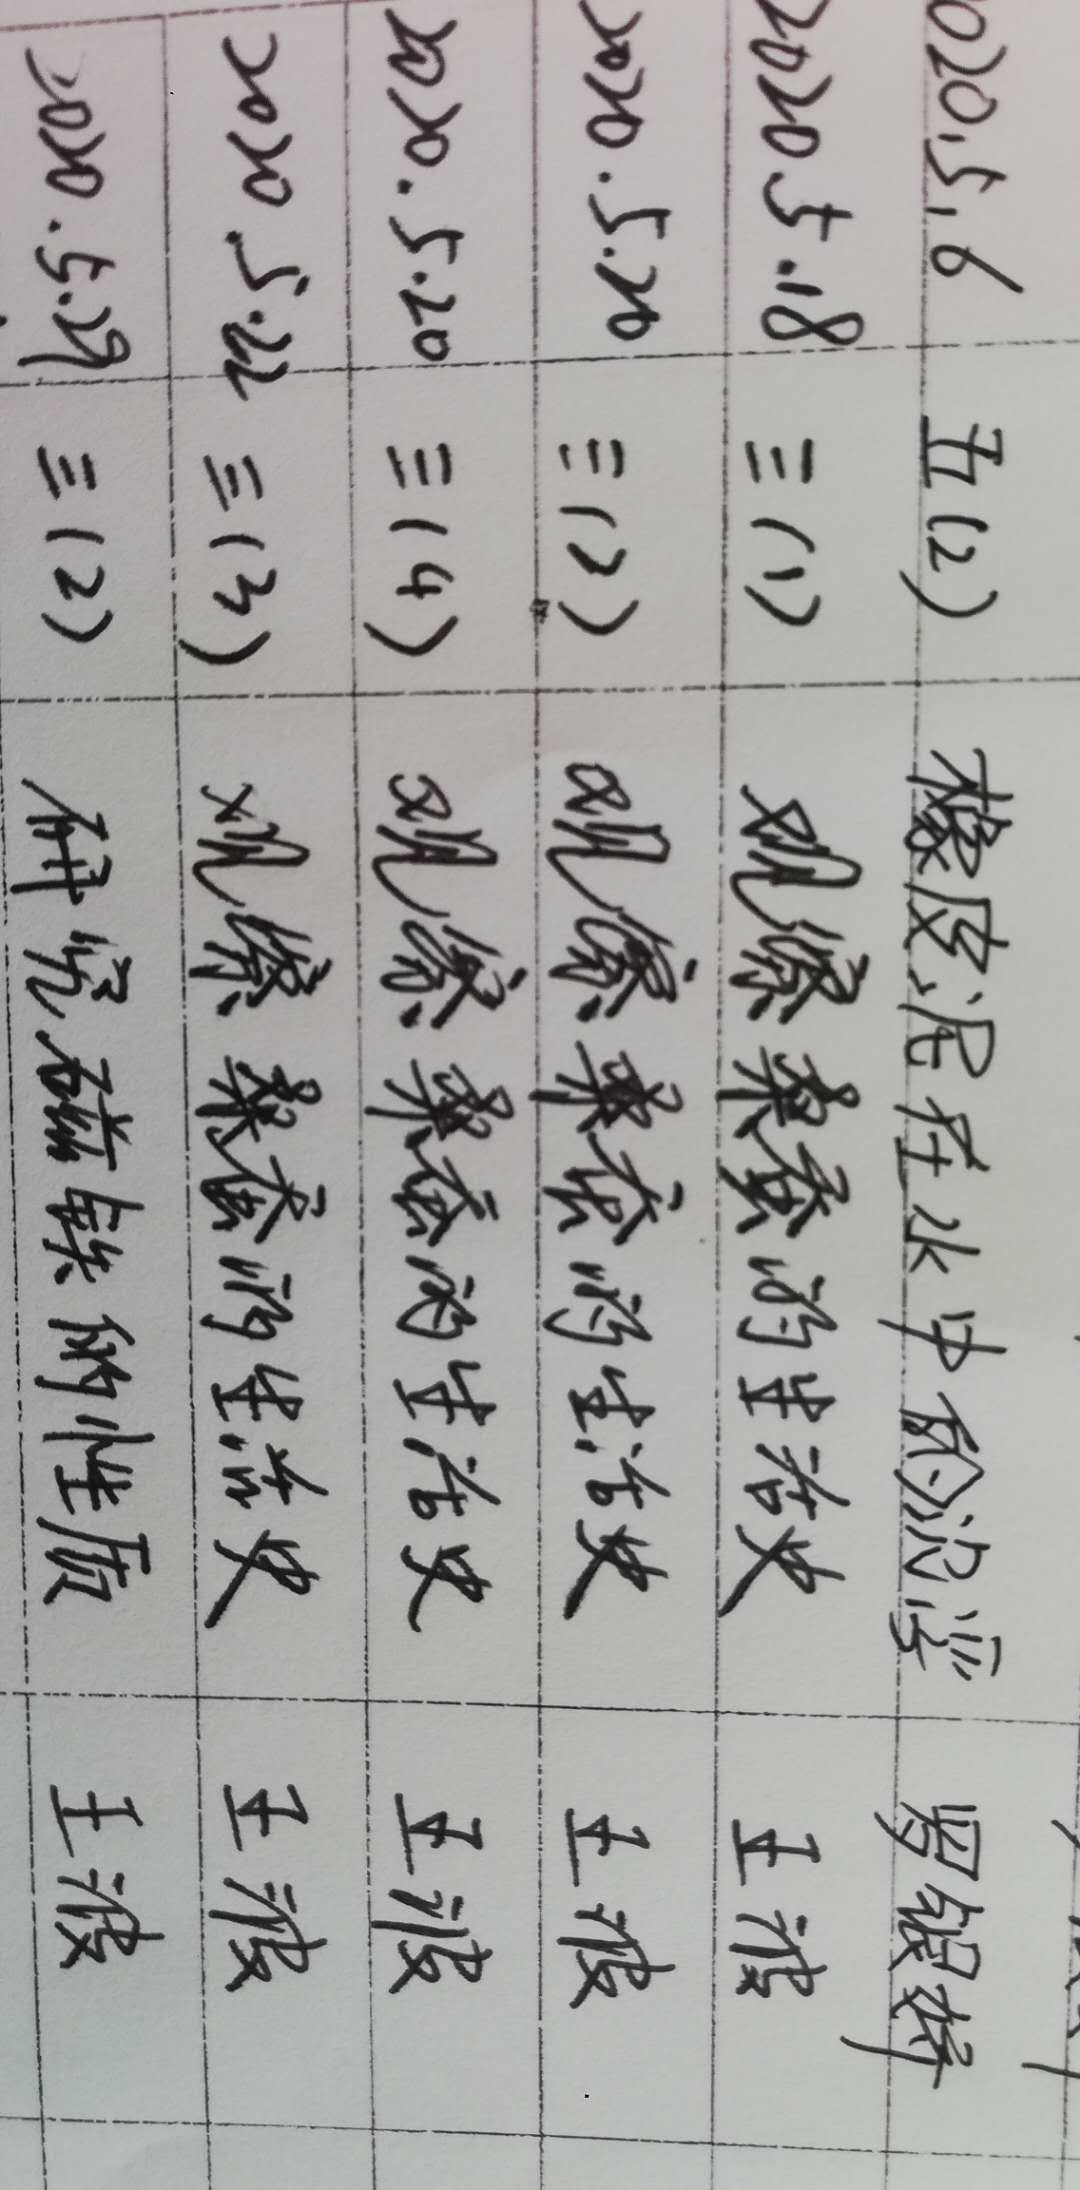 020.5.6 五(2) 橡皮泥在水中的沉浮
2020.5.18 三(1) 观察桑蚕的生活史 王波
2020.5.20 三(2) 观察桑蚕的生活史 王波
2020.5.20 三(4) 观察桑蚕的生活史 王波
2020.5.22 三(3) 观察桑蚕的生活史 王波
2020.5.29 三(2) 研究磁铁的性质 王波